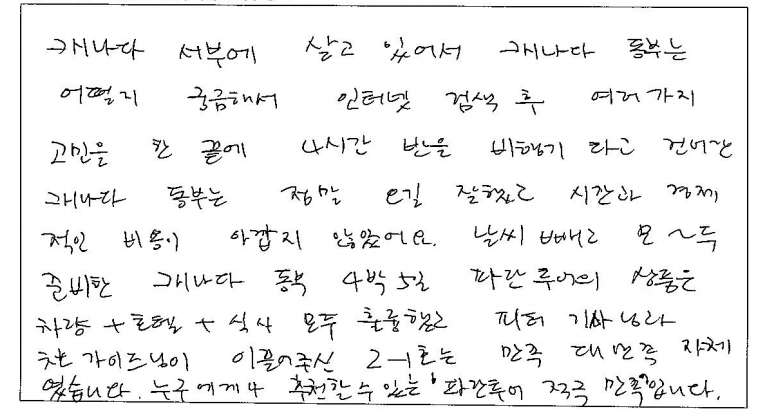 캐나다 서부에 살고 있어서 캐나다 동부는
어떨지 궁금해서 인터넷 검색 후 여러가지
고민을 한 끝에 4시간 반을 비행기 타고 건너간
캐나다 동부는 정말 오길 잘했고 시간과 경제
적인 비용이 아깝지 않았어요. 날씨 빼고 모~두
준비한 캐나다 동북 4박5일 파란투어의 상품은
차량+호텔+식사 모두 훌륭했고 피터 기사님과
가이드님이 이끌어주신 2-1호는 만족 대만족 자체
였습니다. 누구에게나 추천할 수 있는 '파란투어 적극 만족'입니다.